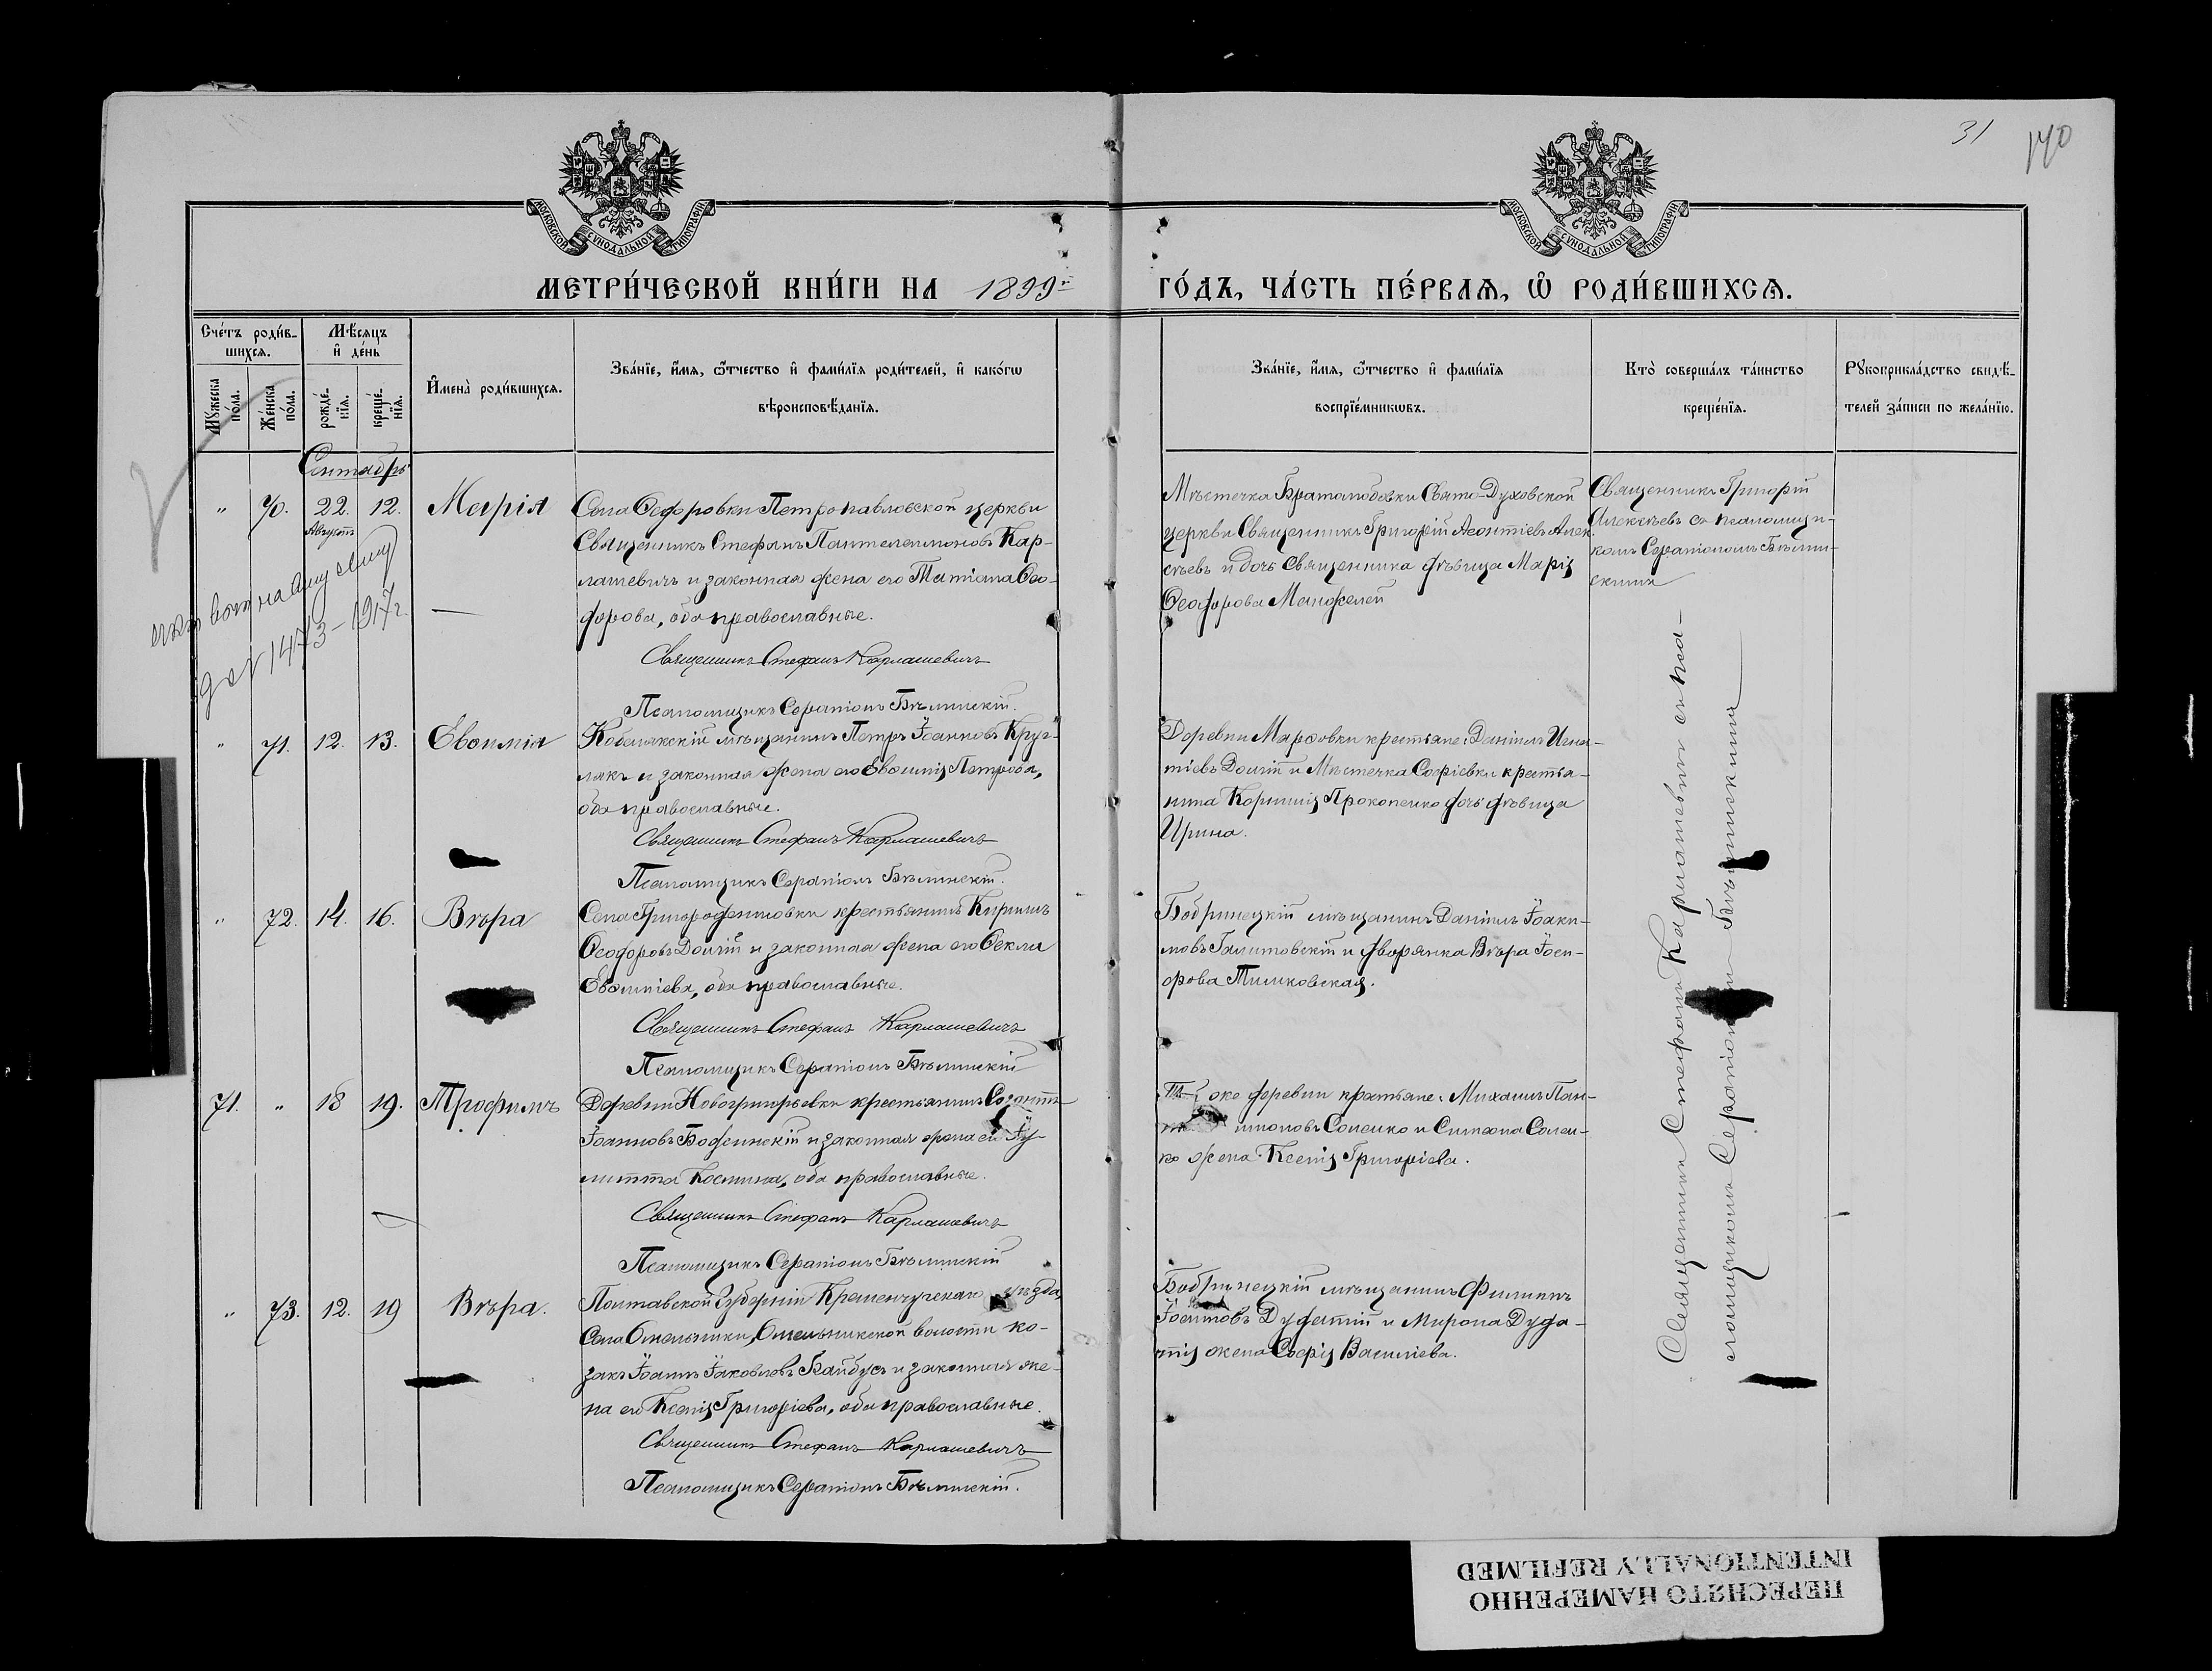 31
140
МОСКОВСКОЙ СУНОДАЛЬНОЙ ТИПОГРАФІИ
МОСКОВСКОЙ СУНОДАЛЬНОЙ ТИПОГРАФІИ
МЕТРИ́ЧЕСКОЙ КНИ́ГИ НА 1899й
ГО́ДЪ, ЧА́СТЬ ПЕ́РВАѦ, Ѡ РОДИ́ВШИХСѦ.
Сче́тъ роди́в-
шихсѧ.
Мꙋжеска по́ла.
Же́нска по́ла.
Мѣ́сѧцъ
и҆ де́нь
рожде́-
нїѧ.
креще́-
нїѧ.
И҆мена̀ роди́вшихсѧ.
Зва́нїе, и҆́мѧ, ѻ҆́тчество и҆ фами́лїѧ роди́телей, и҆ како́гѡ
вѣроисповѣ́данїѧ.
Зва́нїе, и҆́мѧ, ѻ҆́тчество и҆ фами́лїѧ
воспрїе́мникѡвъ.
Кто̀ соверша́лъ та́инство
креще́нїѧ.
Рꙋкоприкла́дство свидѣ́-
телей за́писи по жела́нїю.
Сентябрь
" 70. 22. 12. Марія
Августъ
Села Ѳедоровки Петропавловской церкви
Священникъ Стефанъ Пантелеимоновъ Кар-
лашевичъ и законная жена его Татіана Ѳео-
дорова, оба православные.
Священникъ Стефанъ Карлашевичъ
Псаломщикъ Серапіонъ Бѣлинскій.
Мѣстечка Братолюбовки Свято-Духовской
церкви Священникъ Григорій Леонтіевъ Алек-
сѣевъ и дочь Священника дѣвица Марія
Ѳеодорова Манжелей
Священникъ Григорій
Алексѣевъ съ псаломщи-
комъ Серапіономъ Бѣлин-
скимъ
1473-1917г.
" 71. 12. 13. Евѳимія
Кобелякскій мѣщанинъ Петръ Іоанновъ Круг-
лякъ и законная жена его Евѳимія Петрова,
оба православные.
Священникъ Стефанъ Карлашевичъ
Псаломщикъ Серапіонъ Бѣлинскій.
Деревни Марѳовки крестьяне: Даніилъ Игна-
тіевъ Долгій и Мѣстечка Софіевки крестья-
нина Корнилія Прокопенко дочь дѣвица
Ирина.
" 72. 14. 16. Вѣра
Села Григороденисовки крестьянинъ Кириллъ
Ѳеодоровъ Долгій и законная жена его Ѳекла
Евѳиміева, оба православные.
Священникъ Стефанъ Карлашевичъ
Псаломщикъ Серапіонъ Бѣлинскій
Бобринецкій мѣщанинъ Даніилъ Іоаки-
мовъ Галитовскій и дворянка Вѣра Іоси-
фова Тимковская.
71. " 18 19. Трофимъ
Деревни Новогригорьевки крестьянинъ
Іоанновъ Боденскій и законная жена его Іу-
литта Космина, оба православные.
Священникъ Стефанъ Карлашевичъ
Псаломщикъ Серапіонъ Бѣлинскій
же деревни крестьяне: Михаилъ Пан-
Соленко и Симеона Солен-
ко жена Ксенія Григоріева.
" 73. 12. 19 Вѣра.
Полтавской Губерніи Кременчугскаго уѣзда,
Села Омельники, Омельникской волости ко-
закъ Іоаннъ Іаковлевъ Байбузъ и законная же-
на его Ксенія Григоріева, оба православные.
Священникъ Стефанъ Карлашевичъ
Псаломщикъ Серапіонъ Бѣлинскій.
Бобринецкій мѣщанинъ Филиппъ
Іосифовъ и Мирона
жена Софія Василіева.
Священникъ Стефанъ Карлашевичъ съ пса-
ломщикомъ Серапіономъ Бѣлинскимъ
ПЕРЕСНЯТО НАМЕРЕННО
INTENTIONALLY REFILMED